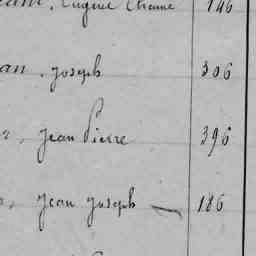 Eugène 146
an, Joseph 306
Jean Pierre 396
Jean Joseph — 186